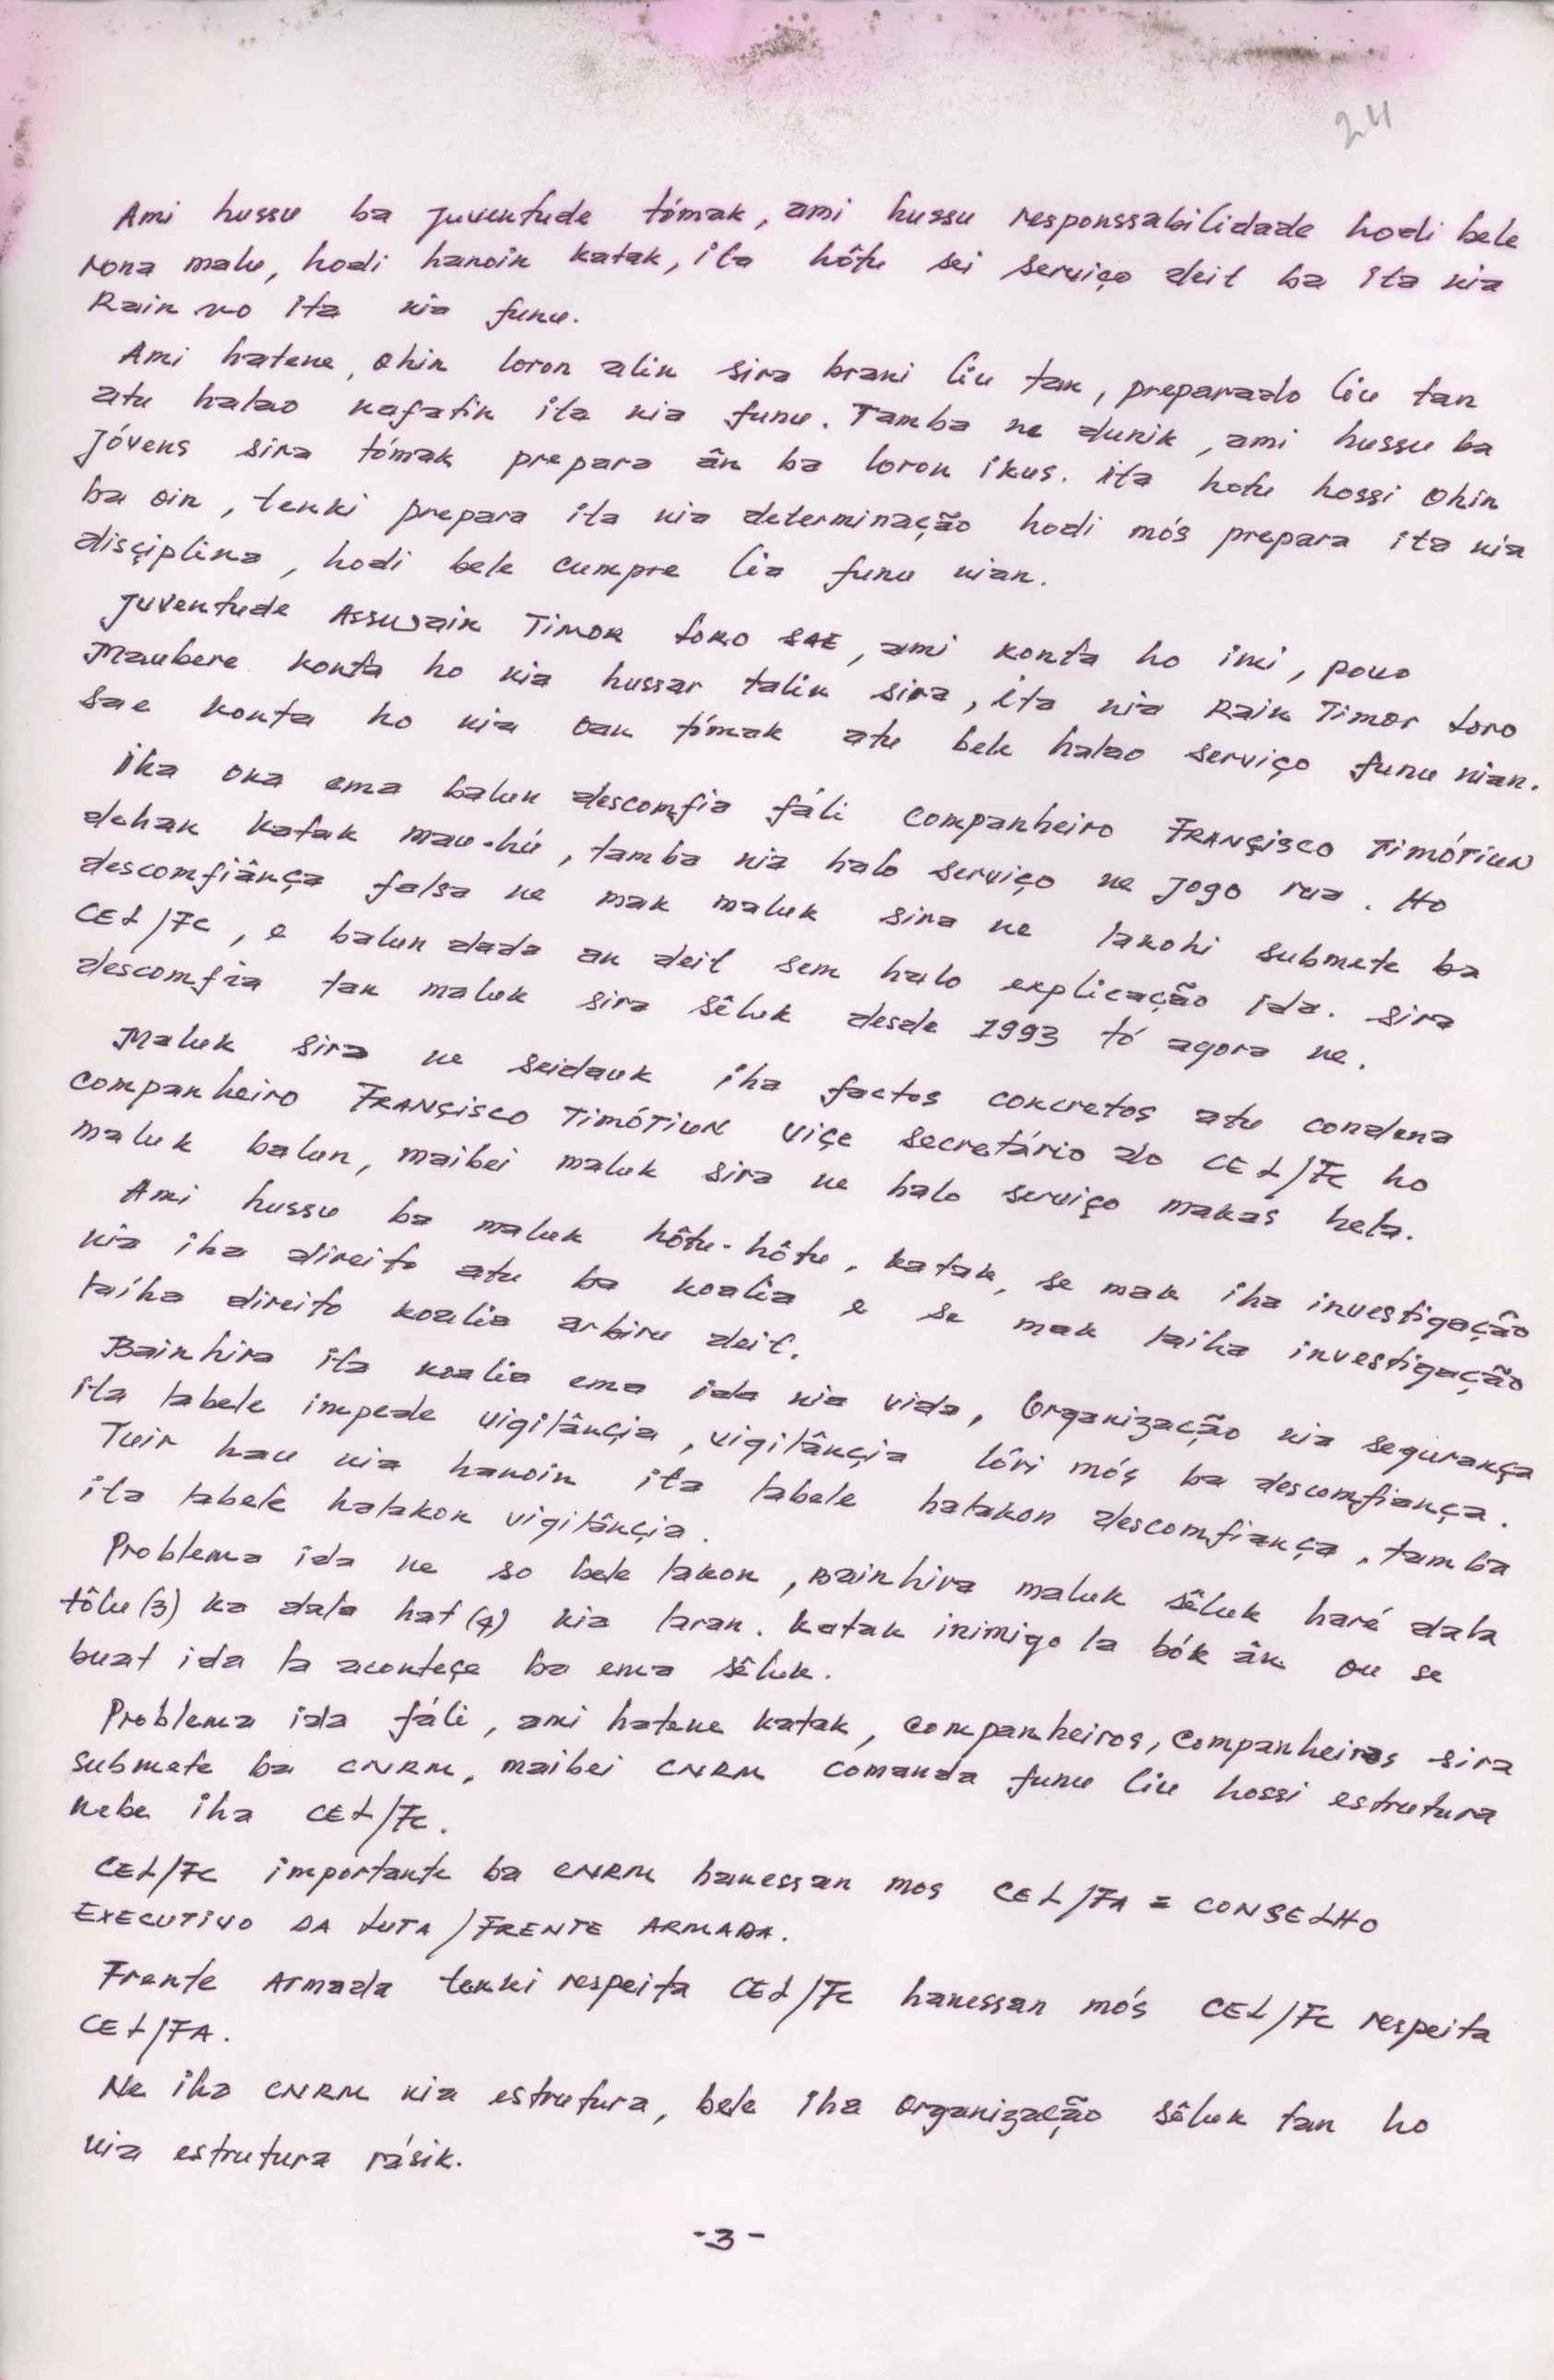 24
Ami hussu ba juventude tómak, ami hussu responssabilidade hodi bele
rona malu, hodi hanoin katak, ita hôtu sei serviço deit ba ita nia
Rain no ita nia funu.
Ami hatene, ohin loron alin sira brani liu tan, preparado liu tan
atu halao nafatin ita nia funu. Tamba ne dunik, ami hussu ba
jóvens sira tómak prepara ân ba loron ikus. ita hotu hossi ohin
ba oin, tenki prepara ita nia determinação hodi mós prepara ita nia
disçiplina, hodi bele cumpre lia funu nian.
Juventude Assuwain TIMOR LORO SAE, ami konta ho imi, povo
Maubere konta ho nia hussar talin sira, ita nia Rain Timor Loro
Sae konta ho nia oan tómak atu bele halao serviço funu nian.
Iha ona ema balun descomfia fáli companheiro FRANÇISCO TIMÓTIUN
dehan katak mau-hú, tamba nia halo serviço ne jogo rua. Ho
descomfiânça falsa ne mak maluk sira ne lakohi submete ba
CEL/FC, e balun dada an deit sem halo explicação ida. Sira
descomfia tan maluk sira sêluk desde 1993 tó agora ne.
Maluk sira ne seidauk iha factos concretos atu condena
companheiro FRANÇISCO TIMÓTIUN viçe secretário do CEL/FC ho
maluk balun, maibei maluk sira ne halo serviço makás hela.
Ami hussu ba maluk hôtu-hôtu, katak, se mak iha investigação
nia iha direito atu ba koalia e se mak laiha investigação
laiha direito koalia arbiru deit.
Bainhira ita koalia ema ida nia vida, Organização nia segurança
ita labele impede vigilânçia, vigilânçia lôri mós ba descomfiança.
Tuir hau nia hanoin ita labele halakon descomfiança, tamba
ita labele halakon vigilânçia.
Problema ida ne so bele lakon, Bainhira maluk sêluk haré dala
tôlu (3) ka dala hat (4) nia laran. katak inimigo la bók ân ou se
buat ida la aconteçe ba ema sêluk.
Problema ida fáli, ami hatene katak, companheiros, Companheiras sira
submete ba CNRM, maibei CNRM comanda funu liu hossi estrutura
nebe iha CEL/FC.
CEL/FC importante ba CNRM hanessan mos CEL/FA = CONSELHO
EXECUTIVO DA LUTA/FRENTE ARMADA.
Frente Armada tenki respeita CEL/FC hanessan mós CEL/FC respeita
CEL/FA.
Ne iha CNRM nia estrutura, bele iha organização sêluk tan ho
nia estrutura rásik.
-3-